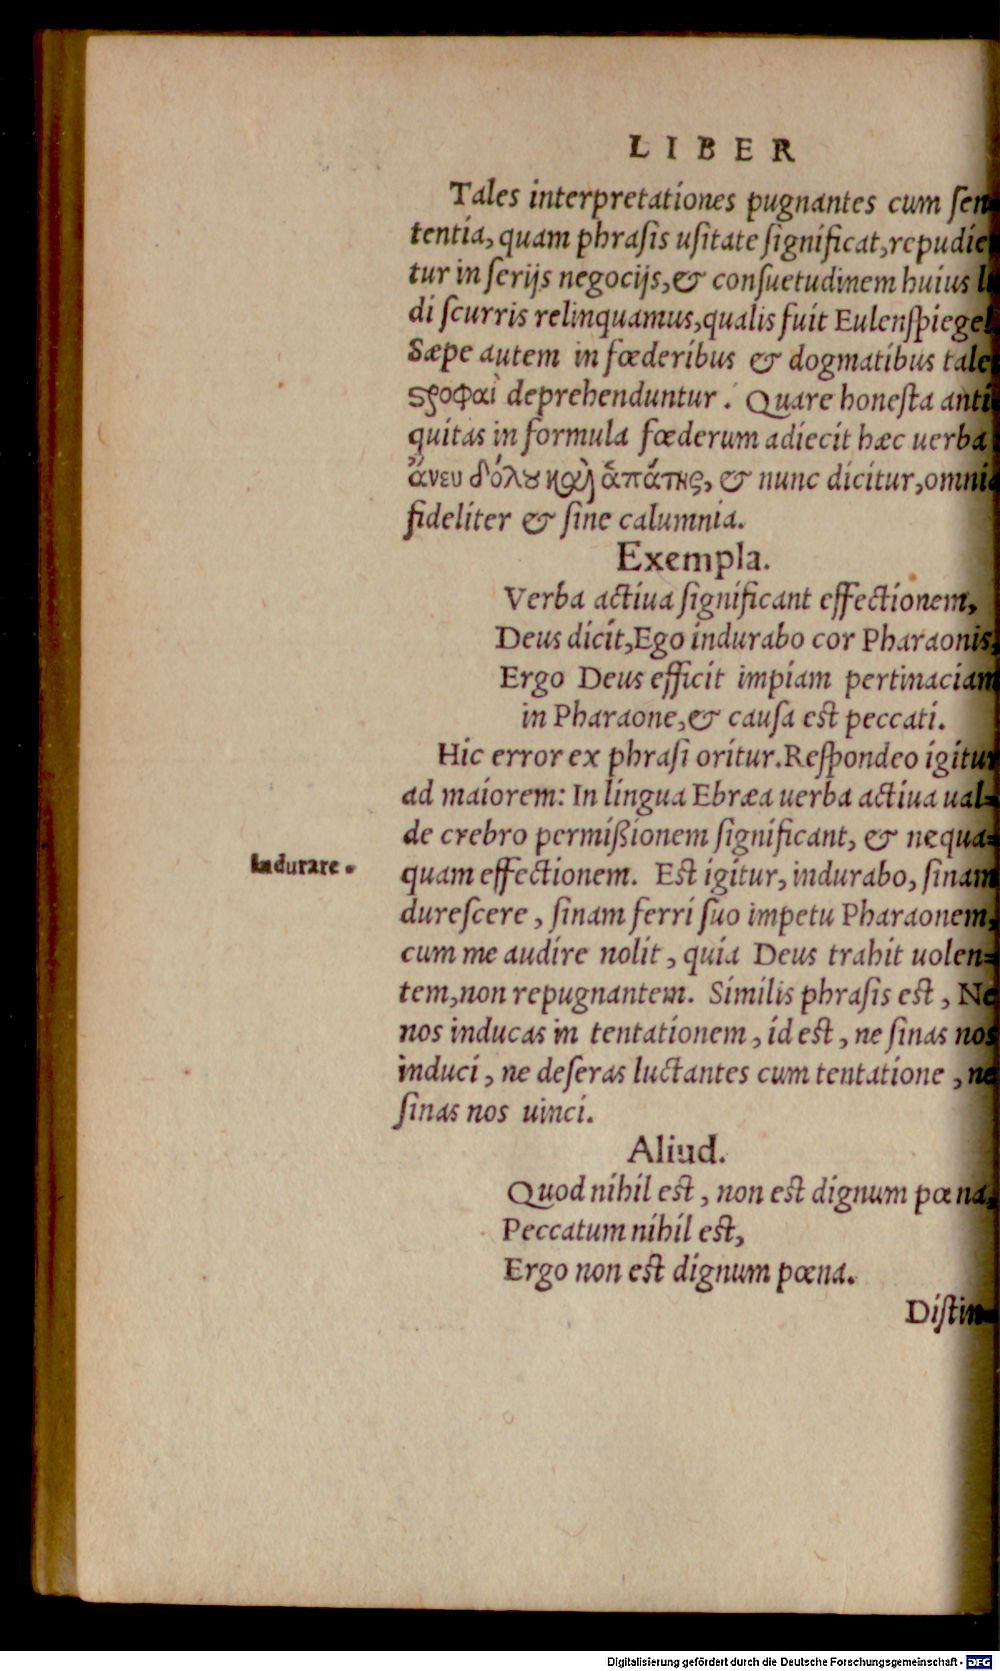 LIBER
Tales interpretationes pugnantes cum ſen-
tentia, quam phraſis uſitate ſignificat, repudie
tur in ſerijs negocijs, & conſuetudinem huius lu
di ſcurris relinquamus, qualis fuit Eulenſpiegel
Sæpe autem in fœderibus & dogmatibus tale
ϛροφαὶ deprehenduntur. Quare honeſta anti-
quitas in formula fœderum adiecit hæc uerba
ἄνευ δόλου καὶ ἀπάτης, & nunc dicitur, omnia
fideliter & ſine calumnia.
Exempla.
Verba actiua ſignificant effectionem,
Deus dicit, Ego indurabo cor Pharaonis,
Ergo Deus efficit impiam pertinaciam
in Pharaone, & cauſa est peccati.
Hic error ex phraſi oritur. Reſpondeo igitur
ad maiorem: In lingua Ebræa uerba actiua ual-
de crebro permißionem ſignificant, & nequa-
Indurare.
quam effectionem. Est igitur, indurabo, ſinam
dureſcere, ſinam ferri ſuo impetu Pharaonem,
cum me audire nolit, quia Deus trahit uolen-
tem, non repugnantem. Similis phraſis est, Ne
nos inducas in tentationem, id est, ne ſinas nos
induci, ne deſeras luctantes cum tentatione, ne
ſinas nos uinci.
Aliud.
Quod nihil est, non est dignum pœna,
Peccatum nihil est,
Ergo non est dignum pœna.
Diſtin-
Digitalisierung gefördert durch die Deutsche Forschungsgemeinschaft - DFG